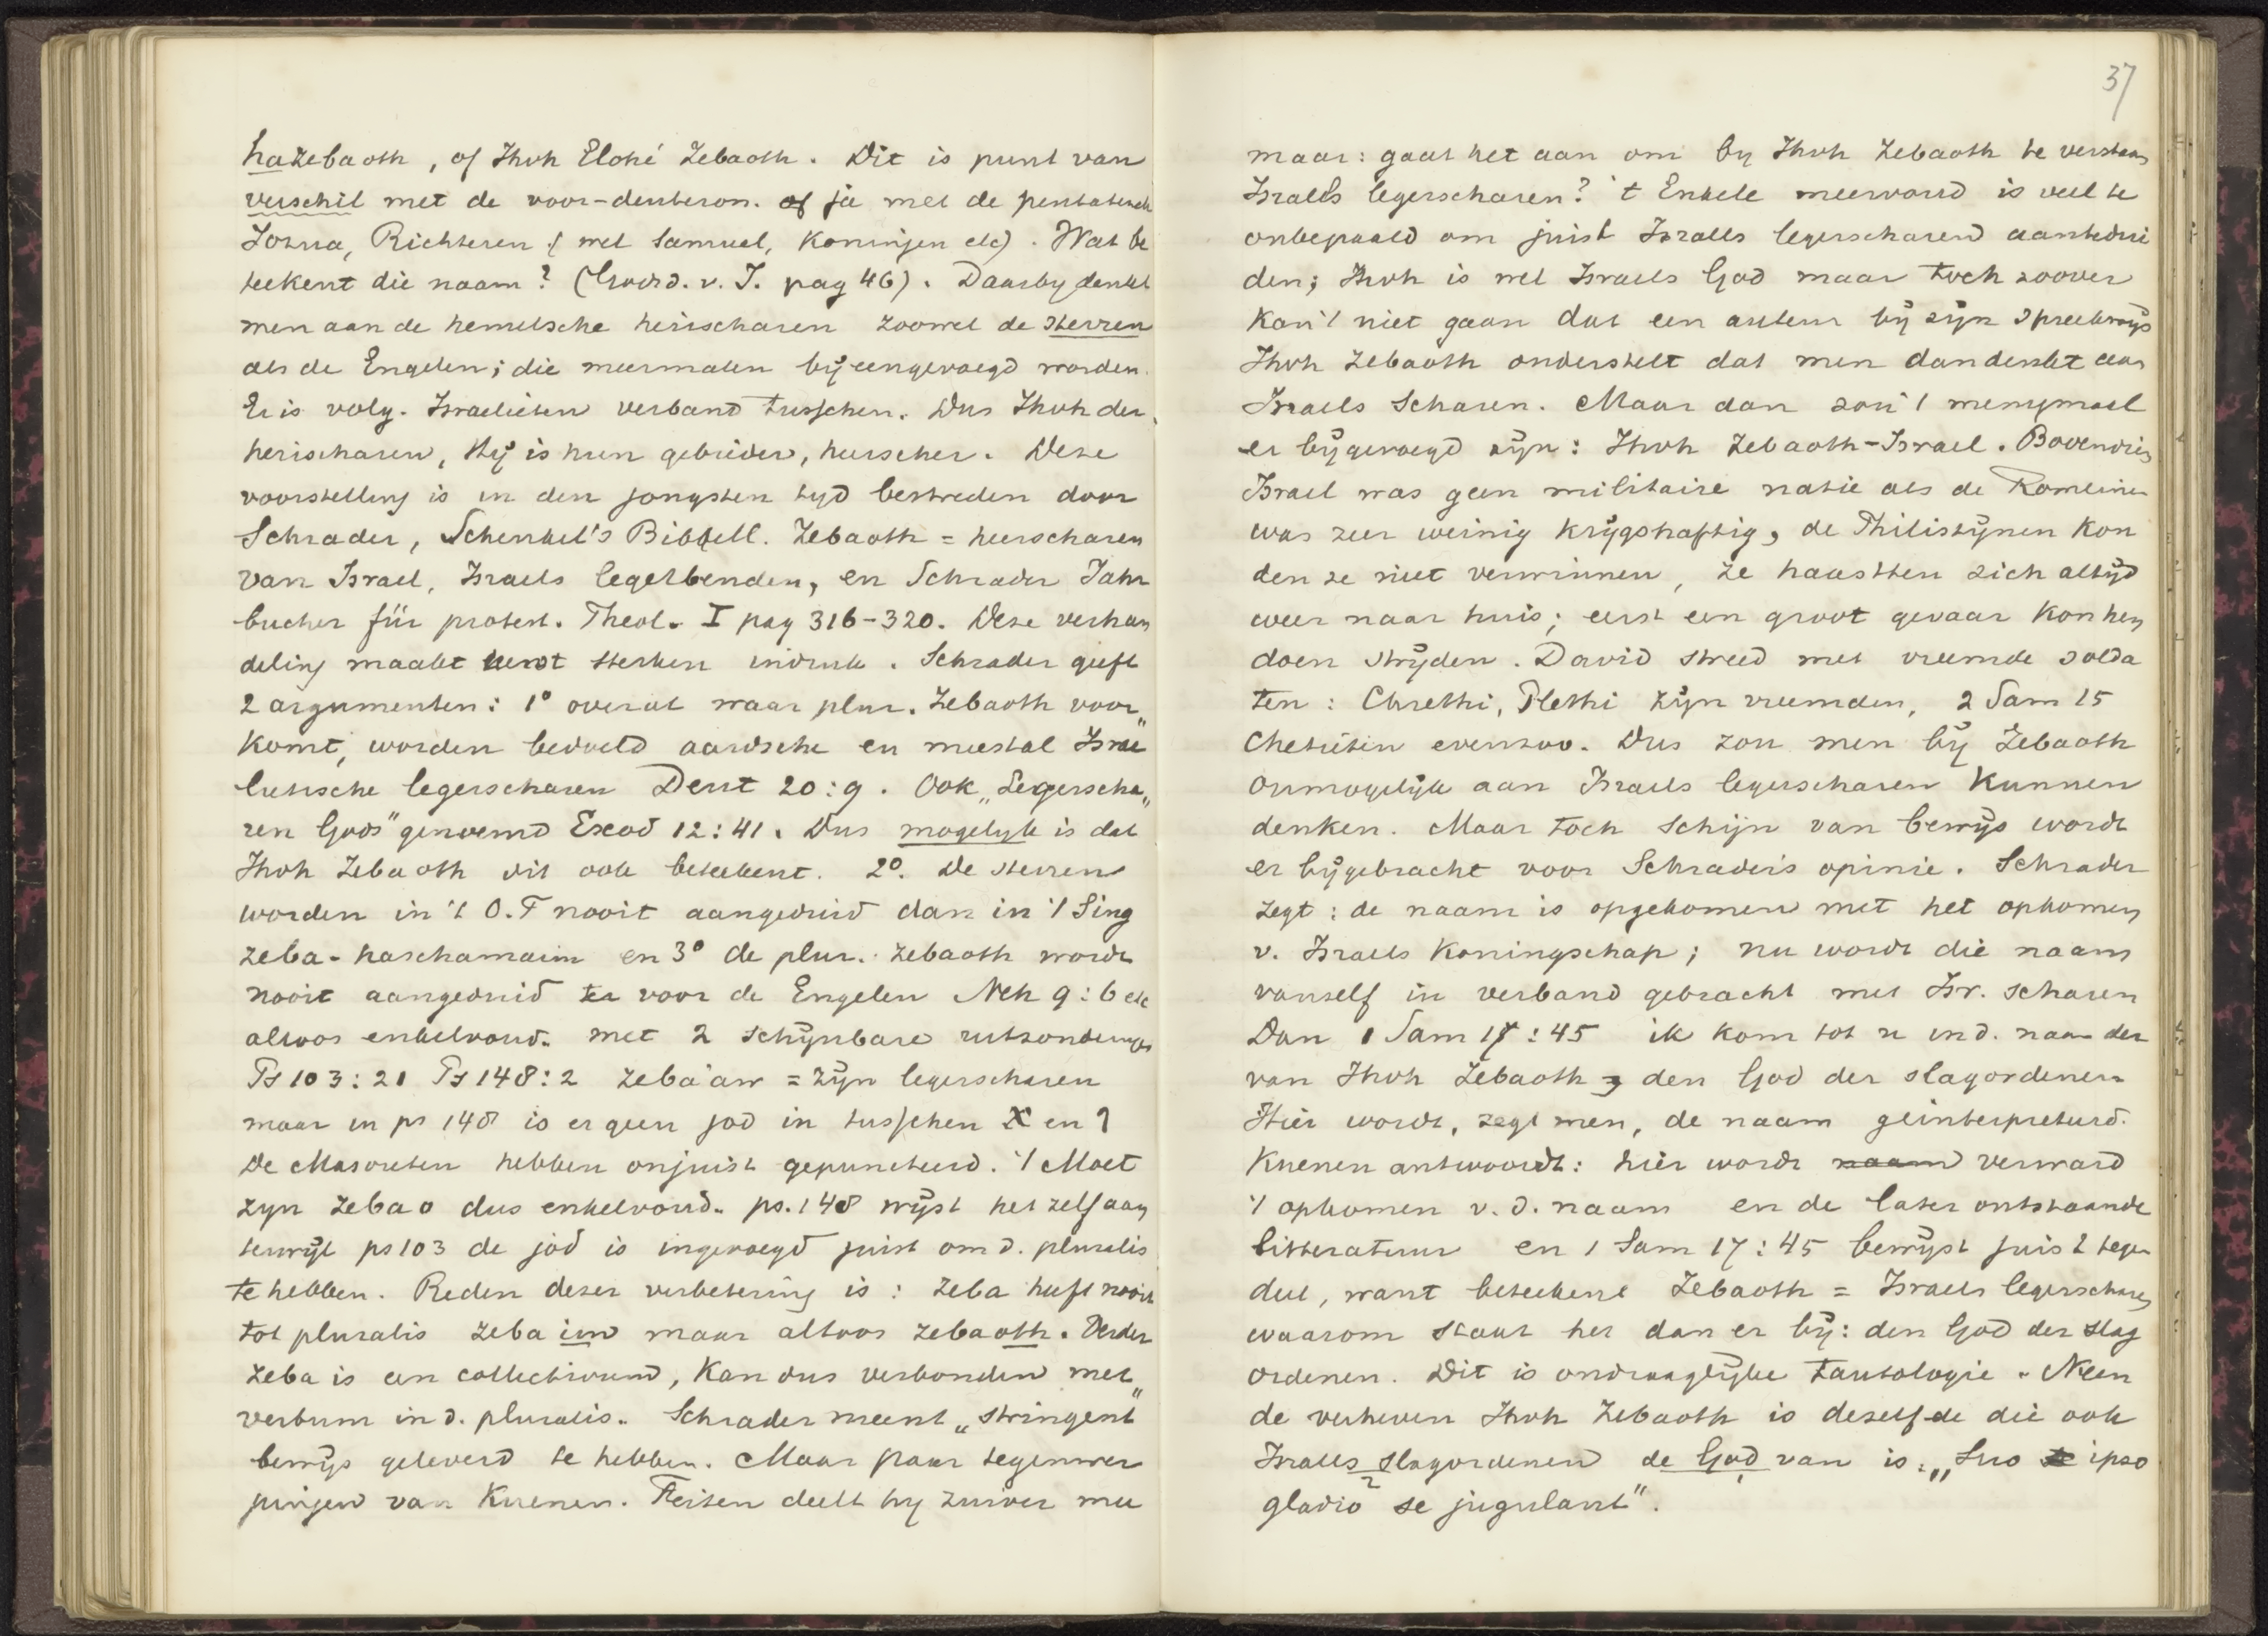 hazebaoth, of Jhvh Elohé Zebaoth. Dit is punt van
verschil met de voor-deuteron. of ja met de pentateuch
Jozua, Richteren (wel Samuel, Koningen etc). Wat be
teekent die naam? (Godsd. v. I. pag 46). Daarby denkt
men aan de hemelsche heirscharen zoowel de sterren
als de Engelen; die meermalen bijeengevoegd worden.
Er is volg. Israelieten verband tusschen. Dus Jhvh der
heirscharen, Hij is hun gebieder, heerscher. Deze
voorstelling is in den jongsten tyd bestreden door
Schrader, Schenkel's Bibell. Zebaoth = heerscharen
van Israel, Israels legerbenden, en Schrader Jahr
bucher für protest. Theol. I pag 316-320. Deze verhan
deling maakt eerst sterken indruk. Schrader geeft
2 argumenten: 1° overal waar plur. Zebaoth voor„
komt, worden bedoeld aardsche en meestal Israe
lietische legerscharen Deut 20:9. Ook „Legerscha„
ren Gods" genoemd Exod 12:41. Dus mogelyk is dat
Jhvh Zebaoth dit ook beteekent. 2°. De sterren
worden in 't O.T nooit aangeduid dan in 't Sing
zeba-haschamaim en 3° de plur. zebaoth wordt
nooit aangeduid voor de Engelen Neh 9:6 etc
altoos enkelvoud. met 2 schijnbare uitzonderingen
Ps 103:21 Ps 148:2 zeba'aw = zijn legerscharen
maar in ps 148 is er geen jod in tusschen א en ו
De Masoreten hebben onjuist gepuncteerd. 't Moet
zyn zebao dus enkelvoud. ps. 148 wijst het zelf aan
terwijl ps 103 de jod is ingevoegd juist om d. pluralis
te hebben. Reden dezer verbetering is: zeba heeft nooit
tot pluralis zebaim maar altoos zebaoth. Verder
zeba is een collectivum, kan dus verbonden met„
verbum in d. pluralis. Schrader meent „stringent
bewijs geleverd te hebben. Maar paar tegenwer
pingen van Kuenen. Feiten deelt hij zuiver mee
37
maar: gaat het aan om by Jhvh Zebaoth te verstaan
Israels legerscharen? 't Enkele meervoud is veel te
onbepaald om juist Israels legerscharen aanteduì
den; Jhvh is wel Israels God maar toch zoover
kan 't niet gaan dat een auteur bij zijn spreekwijs
Jhvh Zebaoth onderstelt dat men dan denkt aan
Israels Scharen. Maar dan zou 't menigmaal
er bijgevoegd zijn: Jhvh Zebaoth-Israel. Bovendien
Israel was geen militaire natie als de Romeinen
was zeer weinig krijgshaftig, de Philistijnen kon
den ze niet verwinnen, ze haastten zich altijd
weer naar huis; eerst een groot gevaar kon hen
doen strijden. David streed met vreemde solda
ten: Chrethi, Plethi zijn vreemden, 2 Sam 15
Chetieten evenzoo. Dus zou men bij Zebaoth
onmogelijk aan Israels legerscharen kunnen
denken. Maar toch schijn van bewijs wordt
er bijgebracht voor Schraders opinie. Schrader
zegt: de naam is opgekomen met het opkomen
v. Israels koningschap; nu wordt die naam
vanzelf in verband gebracht met Isr. scharen
Dan 1 Sam 17:45 ik kom tot u in d. naam der
van Jhvh Zebaoth, den God der slagordenen
Hier wordt, zegt men, de naam geinterpreteerd.
Kuenen antwoordt: hier wordt naam verward
't opkomen v. d. naam en de later ontstaande
litteratuur en 1 Sam 17:45 bewijst juist tegen
deel, want beteekent Zebaoth = Israels legerscharen
waarom staat het dan er bij: den God der slag
ordenen. Dit is ondraaglijke tautologie. Neen
de verheven Jhvh Zebaoth is dezelfde die ook
Israels slagordenen de God van is. „Suo ipso
gladio se jugulant".